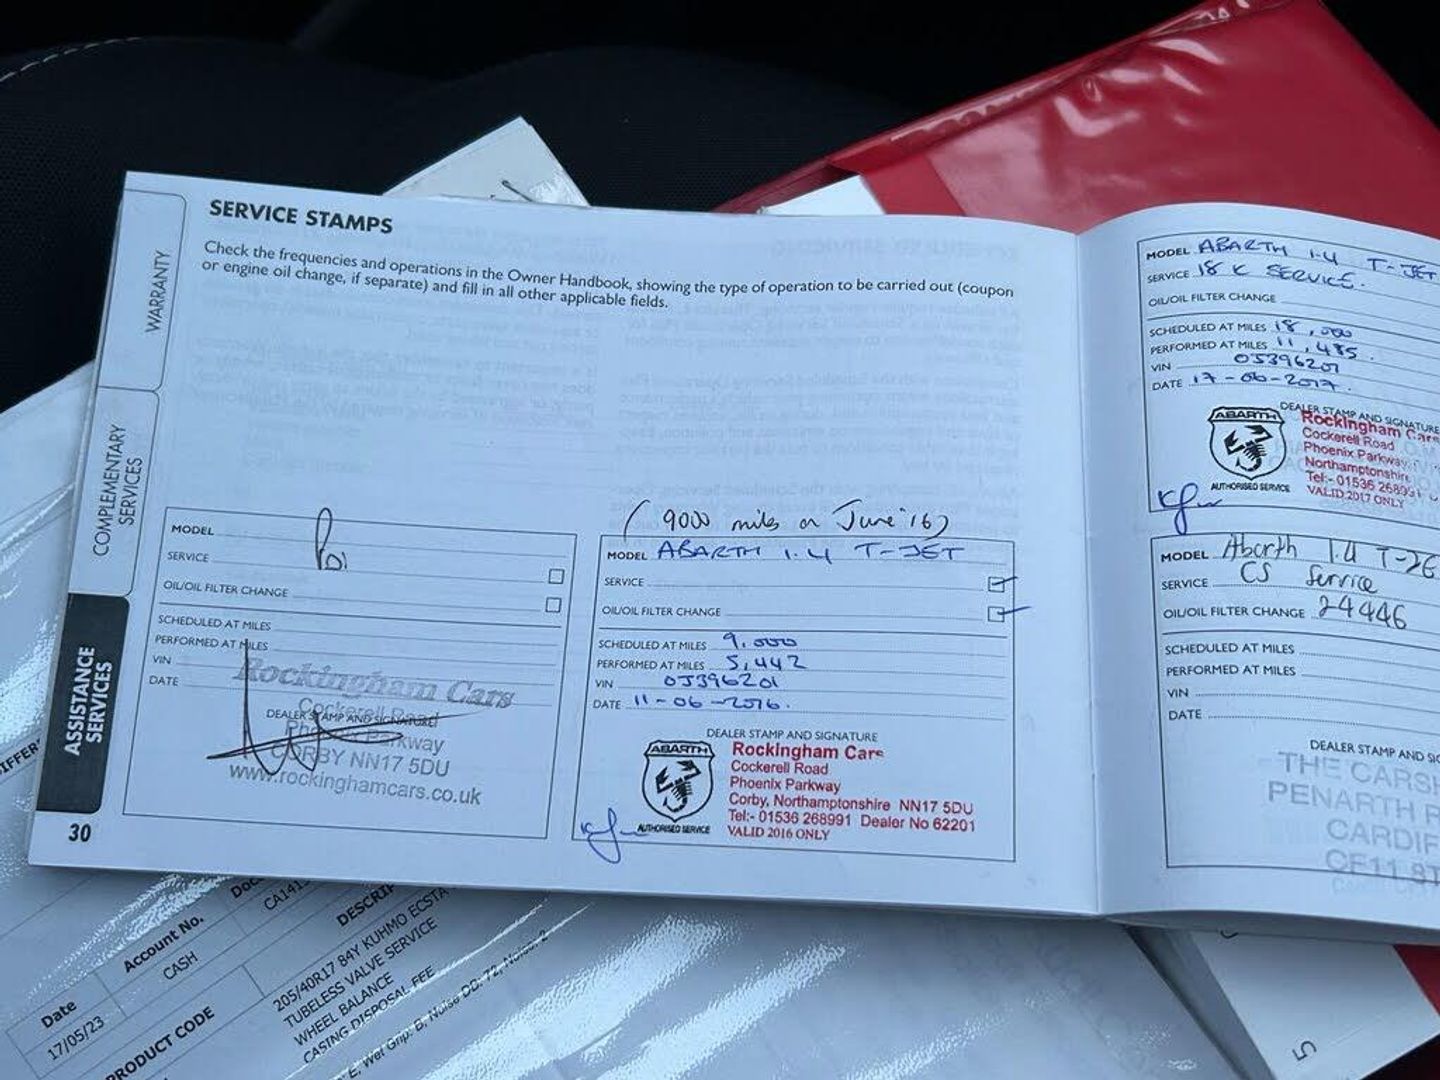 SERVICE STAMPS
Check the frequencies and operations in the Owner Handbook, showing the type of operation to be carried out (coupon
or engine oil change, if separate) and fill in all other applicable fields.
WARRANTY
COMPLEMENTARY
SERVICES
ASSISTANCE
SERVICES
30
MODEL
SERVICE
OIL/OIL FILTER CHANGE
SCHEDULED AT MILES
PERFORMED AT MILES
VIN
DATE
DEALER STAMP AND SIGNATURE
Rockingham Cars
Cockerell Road
Phoenix Parkway
CORBY NN17 5DU
www.rockinghamcars.co.uk
(9000 miles or June '16)
MODEL ABARTH 1.4 T-JET
SERVICE
OIL/OIL FILTER CHANGE
SCHEDULED AT MILES 9,000
PERFORMED AT MILES 5,442
VIN 0J396201
DATE 11-06-2016.
DEALER STAMP AND SIGNATURE
ABARTH
AUTHORISED SERVICE
Rockingham Cars
Cockerell Road
Phoenix Parkway
Corby, Northamptonshire NN17 5DU
Tel:- 01536 268991 Dealer No 62201
VALID 2016 ONLY
MODEL ABARTH 1.4 T-JET
SERVICE 18 K SERVICE.
OIL/OIL FILTER CHANGE
SCHEDULED AT MILES 18,000
PERFORMED AT MILES 11,485.
VIN 0J396201
DATE 17-06-2017.
DEALER STAMP AND SIGNATURE
ABARTH
AUTHORISED SERVICE
Rockingham Cars
Cockerell Road
Phoenix Parkway
Northamptonshire
Tel:- 01536 268991
VALID 2017 ONLY
MODEL Abarth 1.4 T-
SERVICE CS Service
OIL/OIL FILTER CHANGE 24446
SCHEDULED AT MILES
PERFORMED AT MILES
VIN
DATE
DEALER STAMP AND SIG
THE CARSH
PENARTH R
CARDIF
CF11 8T
Date
17/05/23
Account No.
CASH
CA141
PRODUCT CODE
DESCRIP
205/40R17 84Y KUHMO ECSTA
TUBELESS VALVE SERVICE
WHEEL BALANCE
CASING DISPOSAL FEE
E, Wet Grip: B, Noise DB: 72, Noise: 2
5